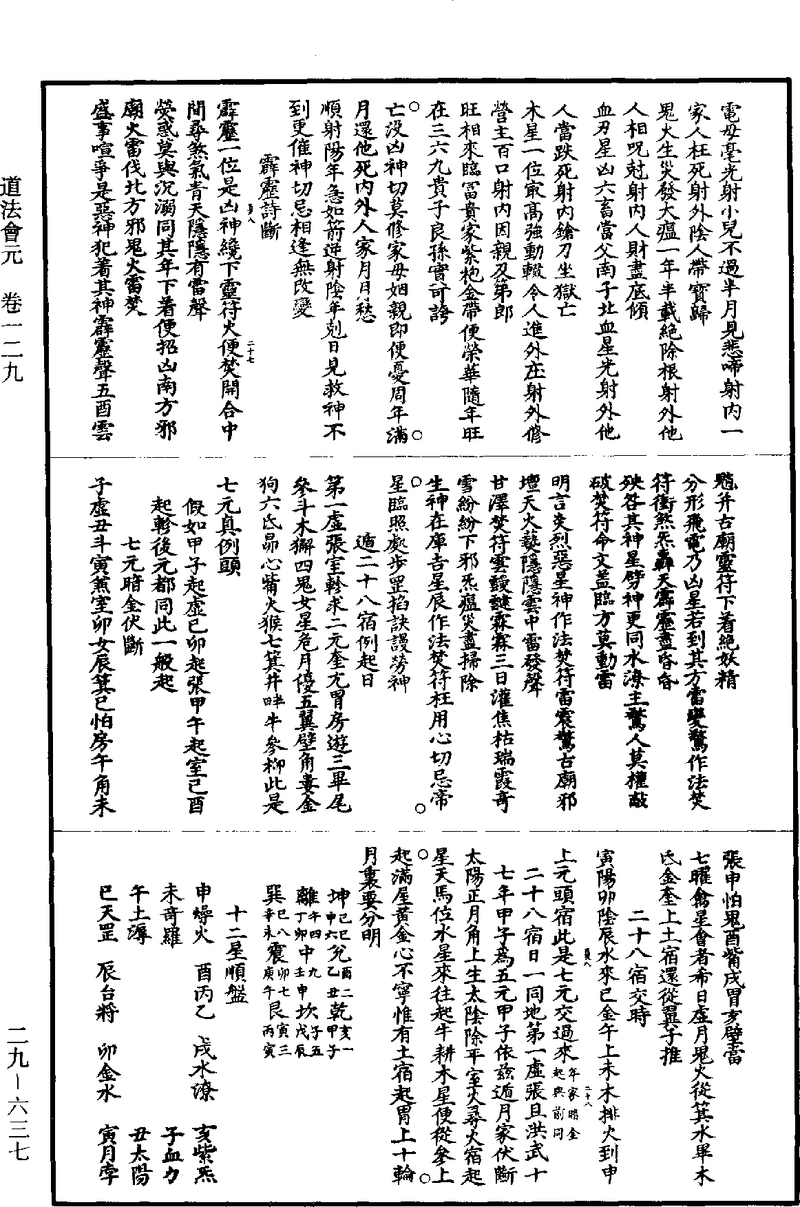 道法會元　卷一二九
二九—六三七
電毋毫光射小兒不過半月見悲啼射内一
家人枉死射外陰人帶寳歸
鬼火生災發大瘟一年半載絶除根射外他
人相呪尅射内人財盡底傾
血刃星凶六畜當父南子北血星光射外他
人當跌死射内鎗刀坐獄亡
木星一位最髙強動輙令人進外庄射外修
營主百口射内因親及第郎
旺相來臨冨貴家紫袍金帶便榮華隨年旺
在三六九貴子良孫實可誇
亡没凶神切莫修家毋姻親即便憂周年滿
月還他死内外人家月日愁
順射陽年急如箭逆射陰年剋日見救神不
到更催神切忌相逢無改變
霹靂詩斷
霹靂一位是凶神纔下靈符火便焚開合中
二十七
間尋煞氣青天隱隱有雷聲
熒惑莫與沉溺同其年下着便招凶南方邪
廟火雷伐北方邪鬼火雷焚
盛事喧爭是惡神犯着其神霹靂聲五酉雲
魒并古廟靈符下着絶妖精
分形飛電乃凶星若到其方雷變驚作法焚
符衝煞炁轟天霹靂盡昏昏
殃咎其神星劈神更同水潦主驚人莫權敲
破焚符命文盖臨方莫動雷
明言炎烈惡星神作法焚符雷震驚古廟邪
壇天火爇隱隱雲中雷發聲
甘澤焚符雲靉靆霖霖三日灌焦枯瑞霞竒
雪紛紛下邪炁瘟災盡掃除
生神在庫吉星辰作法焚符枉用心切忌帝
星臨照處步罡掐訣謾勞神
遁二十八宿例起日
第一虚張室軫求二元奎亢胃房遊三畢尾
參斗木獬四鬼女星危月傍五翼壁角婁金
狗六氐昴心觜火猴七箕井畔牛參柳此是
七元真例頭
假如甲子起虚己卯起張甲午起室己酉
起軫後元都同此一般起
七元暗金伏斷
子虚丑斗寅蕪室卯女辰箕巳怕房午角未
張申怕鬼酉觜戌胃亥壁當
七曜禽星會者希日虚月鬼火從箕水畢木
氐金奎上土宿還從翼子推
二十八宿交時
寅陽卯陰辰水來巳金午上未木排火到申
二十八
上元頭宿此是七元交過來年家暗金起與前同
二十八宿日一同地第一虚張且洪武十
七年甲子為五元甲子依兹遁月家伏斷
太陽正月角上生太陰除平室火尋火宿起
星天馬位水星來往起牛耕木星便從參上
起滿屋黄金心不寧惟有土宿起胃上十輪
月裏要分明
坤己巳申六兌酉二乙丑乾亥一甲子
離午四丁卯中九壬申坎子五戊辰
巽巳八辛未震卯七庚午艮寅三丙寅
十二星順盤
申燥火　酉丙乙　戌水潦　亥紫炁
未竒羅　子血刃
午土溽　丑太陽
巳天罡　辰台將　卯金水　寅月孛